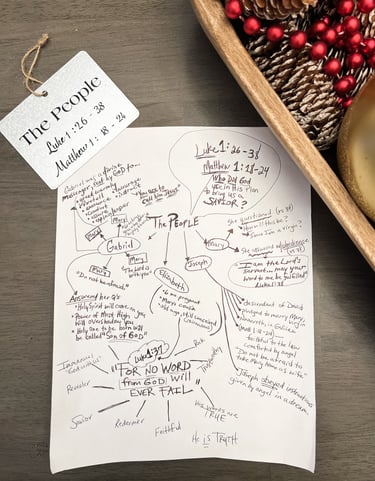 The People
Luke 1:26-38
Matthew 1:18-24
Luke 1:26-38
Matthew 1:18-24
Who did God
use in His plan to
bring us a
SAVIOR?
The PEOPLE
Gabriel was a divine
messenger, sent by God to...
"You are to
call him Jesus"
Gabriel
Mary
"The Lord is
with you"
Mary
"Do not be afraid"
Answered her Q's:
"Holy Spirit will come on
Power of Most High
will overshadow you
Holy one to be born will
be called "Son of GOD"
Elizabeth
6 mo. pregnant
Mary's cousin
Old age, still conceived
Joseph
Mary
She questioned (vs 34)
How'll this be?
Since I am a virgin?
She answered w/ obedience (vs 38)
I am the Lord's
servant... may your
word to me be fulfilled
Luke 1:38
descendant of David
pledged to marry Mary
Nazareth in Galilee
(Matt 1:18-24)
faithful to the law
comforted by angel
Do not be afraid to
take Mary home as wife"
Joseph obeyed instructions
given by angel in a dream.
Luke 1:37
"FOR NO WORD
from GOD WILL
EVER FAIL"
Immanuel
"God with us"
Revealer
Savior
Redeemer
Faithful
His words are
TRUE
He is TRUTH